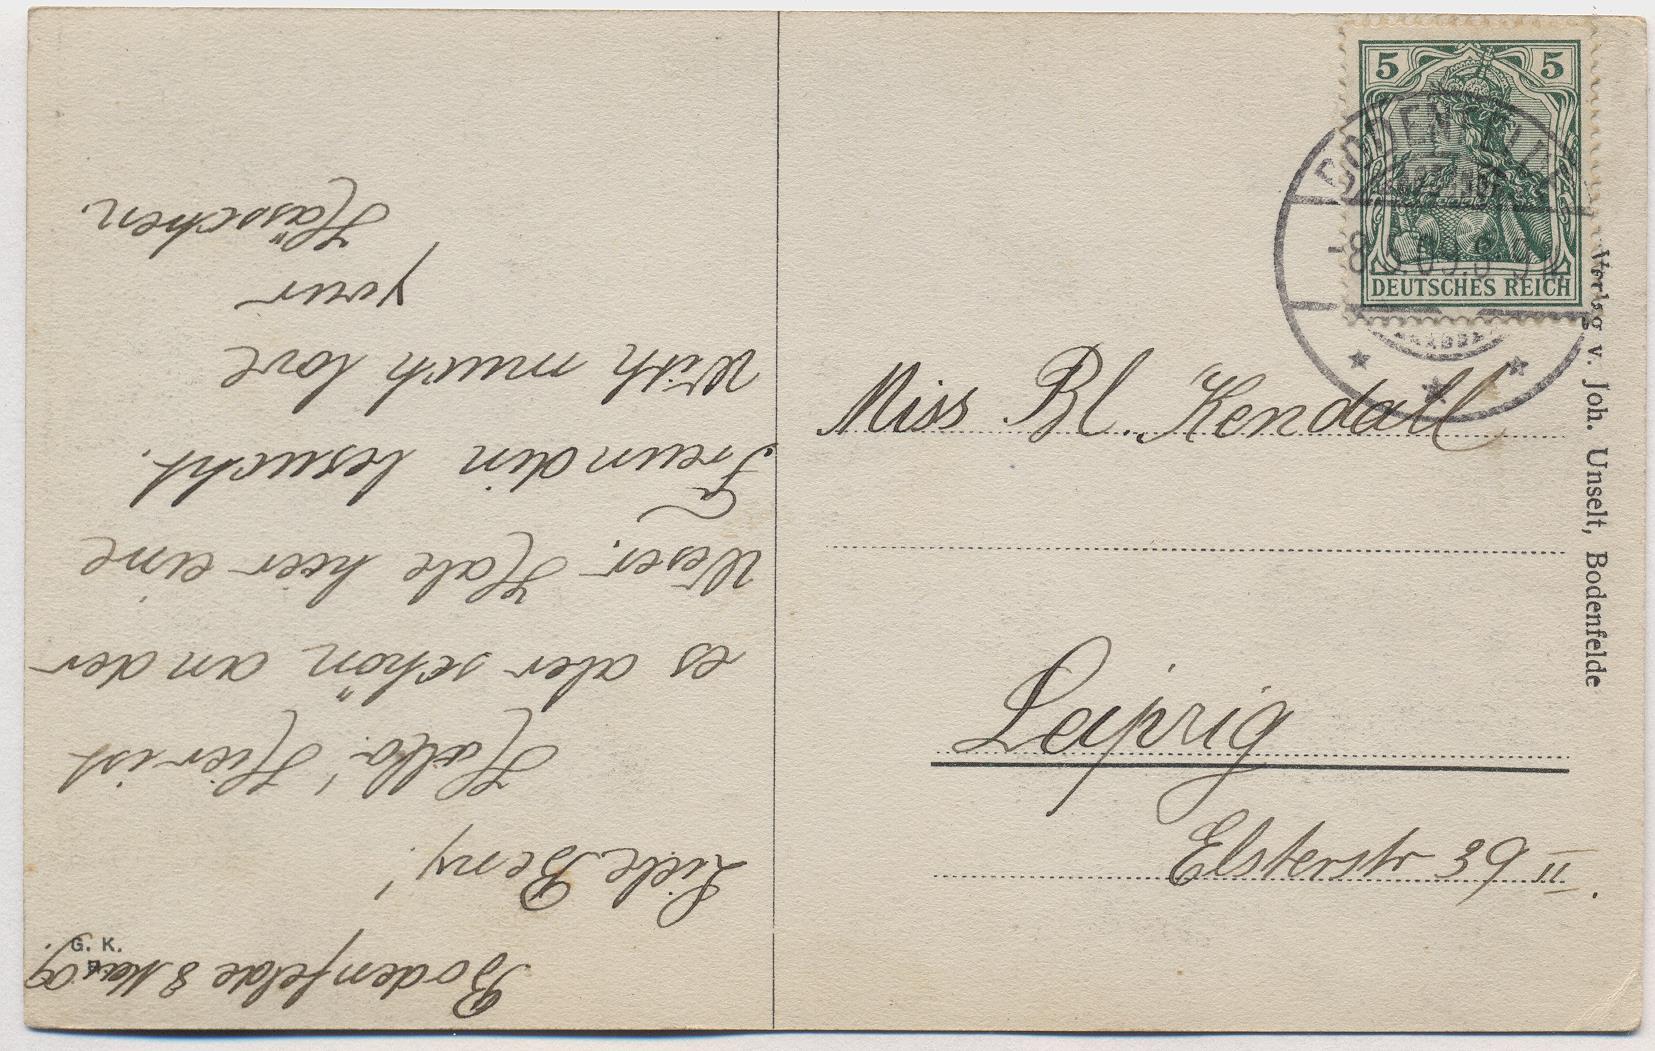 Bodenfelde 8 Mai 09.
Liebe Beny!
Hallo! Hier ist
es aber schön an der
Weser. Habe hier eine
Freundin besucht.
With much love
your
Hässchen.
G. K.
5 5
DEUTSCHES REICH
BODENFELDE
8.5.09.
Miss Bl. Kendall
Leipzig
Elsterstr 39 II.
Verlag v. Joh. Unselt, Bodenfelde